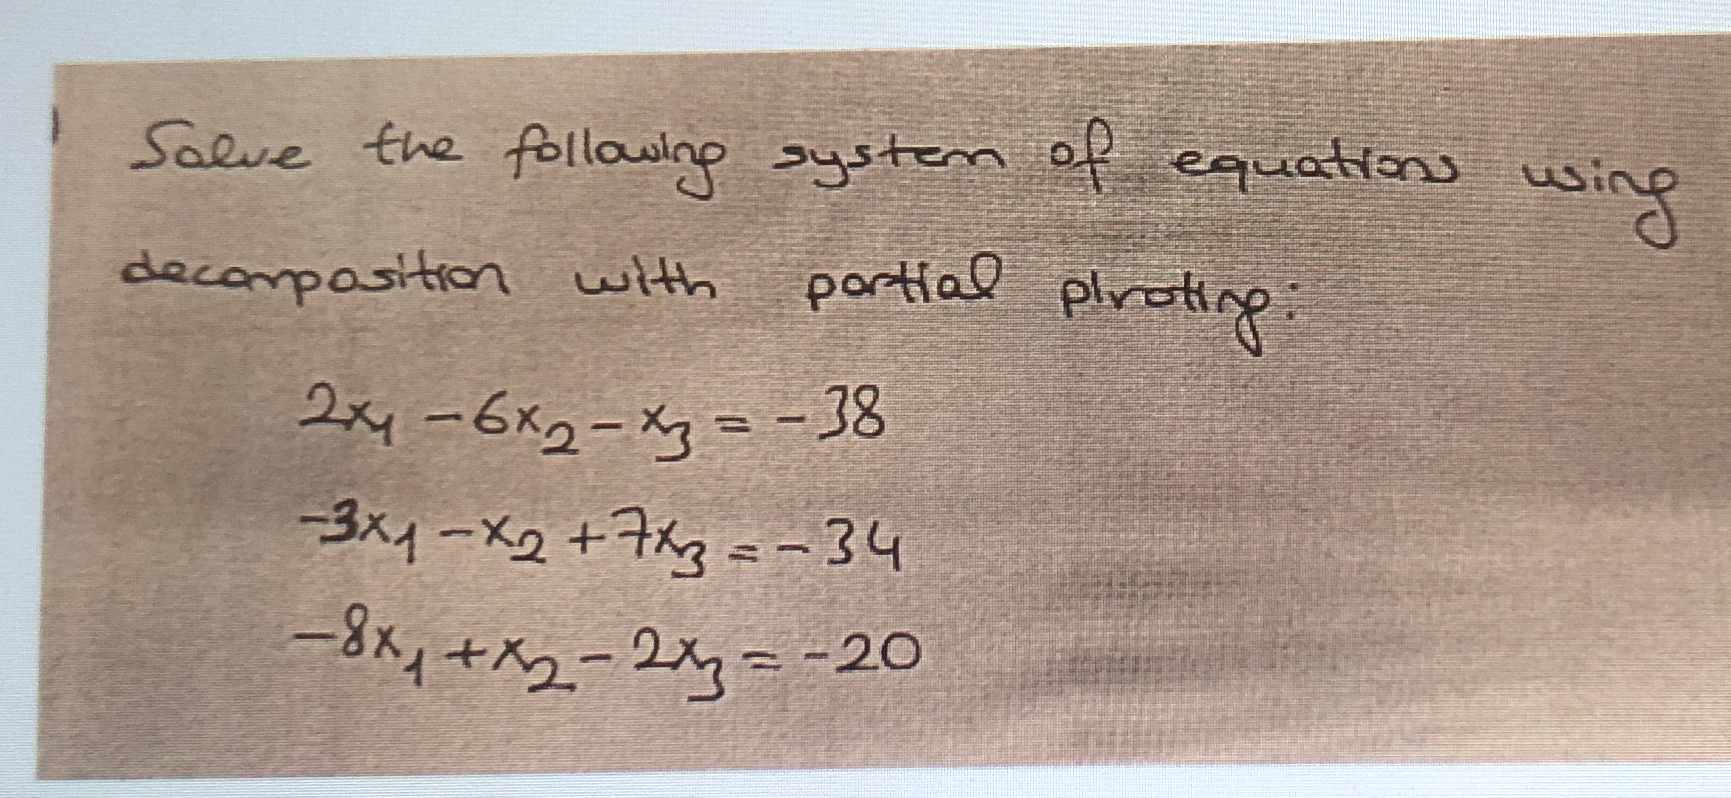 Solve the following system of equations using
decomposition with partial pivoting:
2x₁ - 6x₂ - x₃ = -38
-3x₁ - x₂ + 7x₃ = -34
-8x₁ + x₂ - 2x₃ = -20